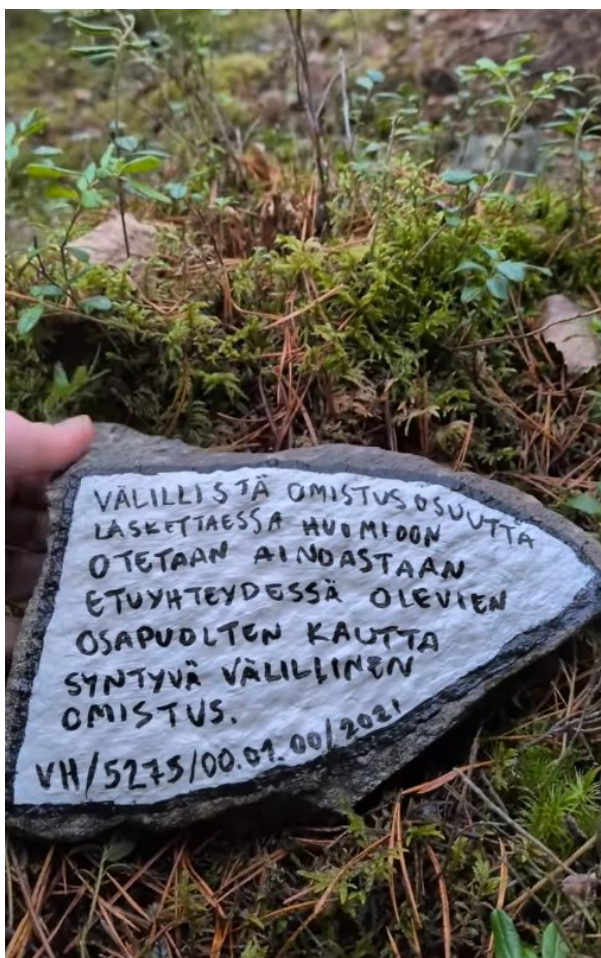 VÄLILLISTÄ OMISTUSOSUUTTA
LASKETTAESSA HUOMIOON
OTETAAN AINOASTAAN
ETUYHTEYDESSÄ OLEVIEN
OSAPUOLTEN KAUTTA
SYNTYVÄ VÄLILLINEN
OMISTUS.
VH/5275/00.01.00/2021